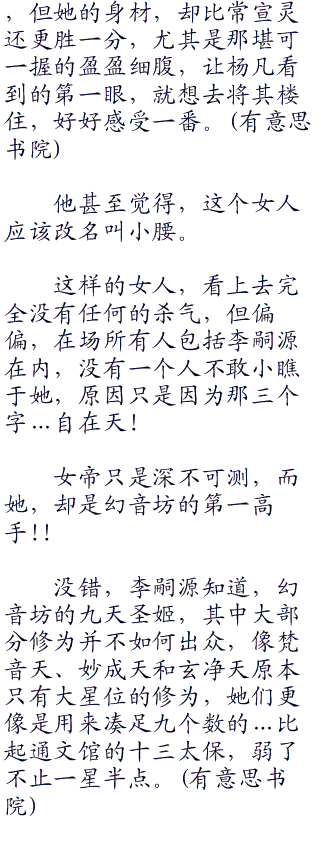 ，但她的身材，却比常宣灵
还更胜一分，尤其是那堪可
一握的盈盈细腹，让杨凡看
到的第一眼，就想去将其楼
住，好好感受一番。(有意思
书院)
他甚至觉得，这个女人
应该改名叫小腰。
这样的女人，看上去完
全没有任何的杀气，但偏
偏，在场所有人包括李嗣源
在内，没有一个人不敢小瞧
于她，原因只是因为那三个
字…自在天！
女帝只是深不可测，而
她，却是幻音坊的第一高
手！！
没错，李嗣源知道，幻
音坊的九天圣姬，其中大部
分修为并不如何出众，像梵
音天、妙成天和玄净天原本
只有大星位的修为，她们更
像是用来凑足九个数的…比
起通文馆的十三太保，弱了
不止一星半点。(有意思书
院)